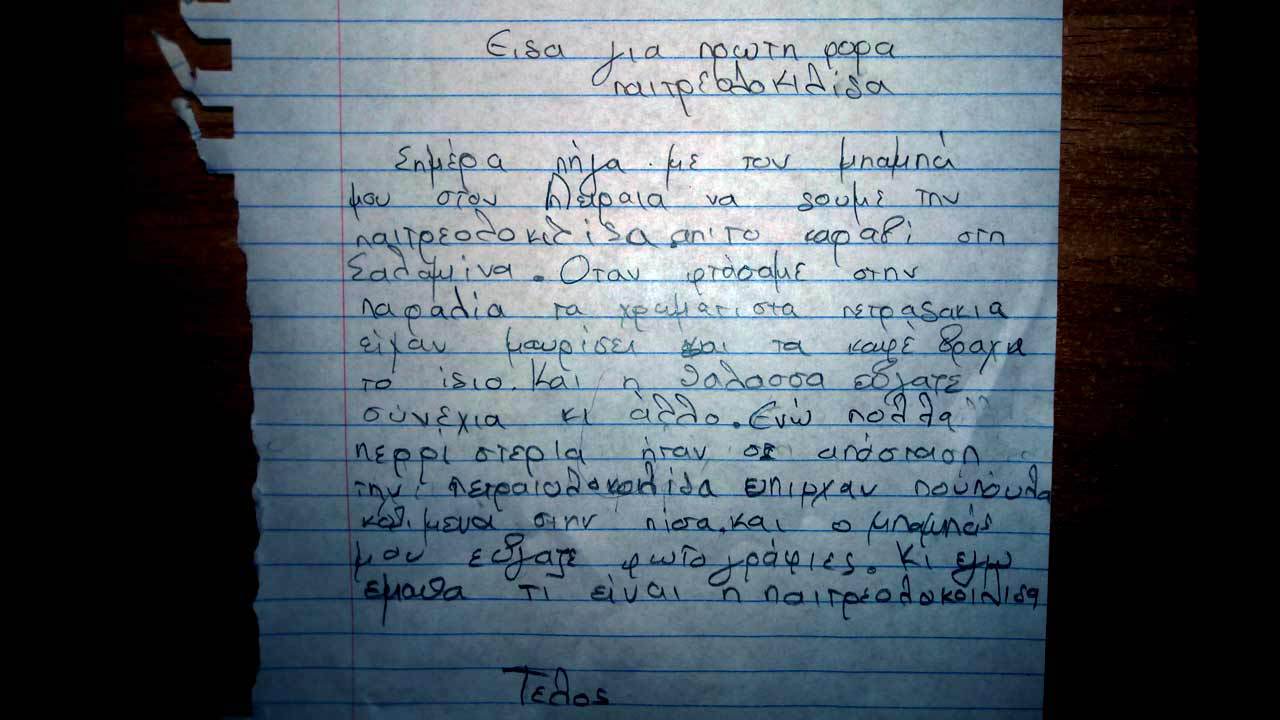 Ειδα για πρωτη φορα
παιτρεολοκιλίδα
Σημέρα πήγα με τον μπαμπά
μου στον Πειραιά να δουμε την
παιτρεολοκιλίδα απίτο καραβι στη
Σαλαμίνα. Οταν φτάσαμε στην
παραλία τα χρωματιστα πετραδακια
είχαν μαυρίσει και τα καφέ βραχια
το ίδιο. Και η θαλασσα εβγατε
σύνέχια κι άλλο. Ενώ πολλα
περρίστερια ήταν σε απόσταση
την πετραιολοκολίδα επιρχαν πούπουλα
καλιμενά στην πίσα. και ο μπαμπάς
μου εβγατε φωτογράφιες. Κί εγω
εμαθα τι είναι η παιτρεολοκοιλιδα
Τελος